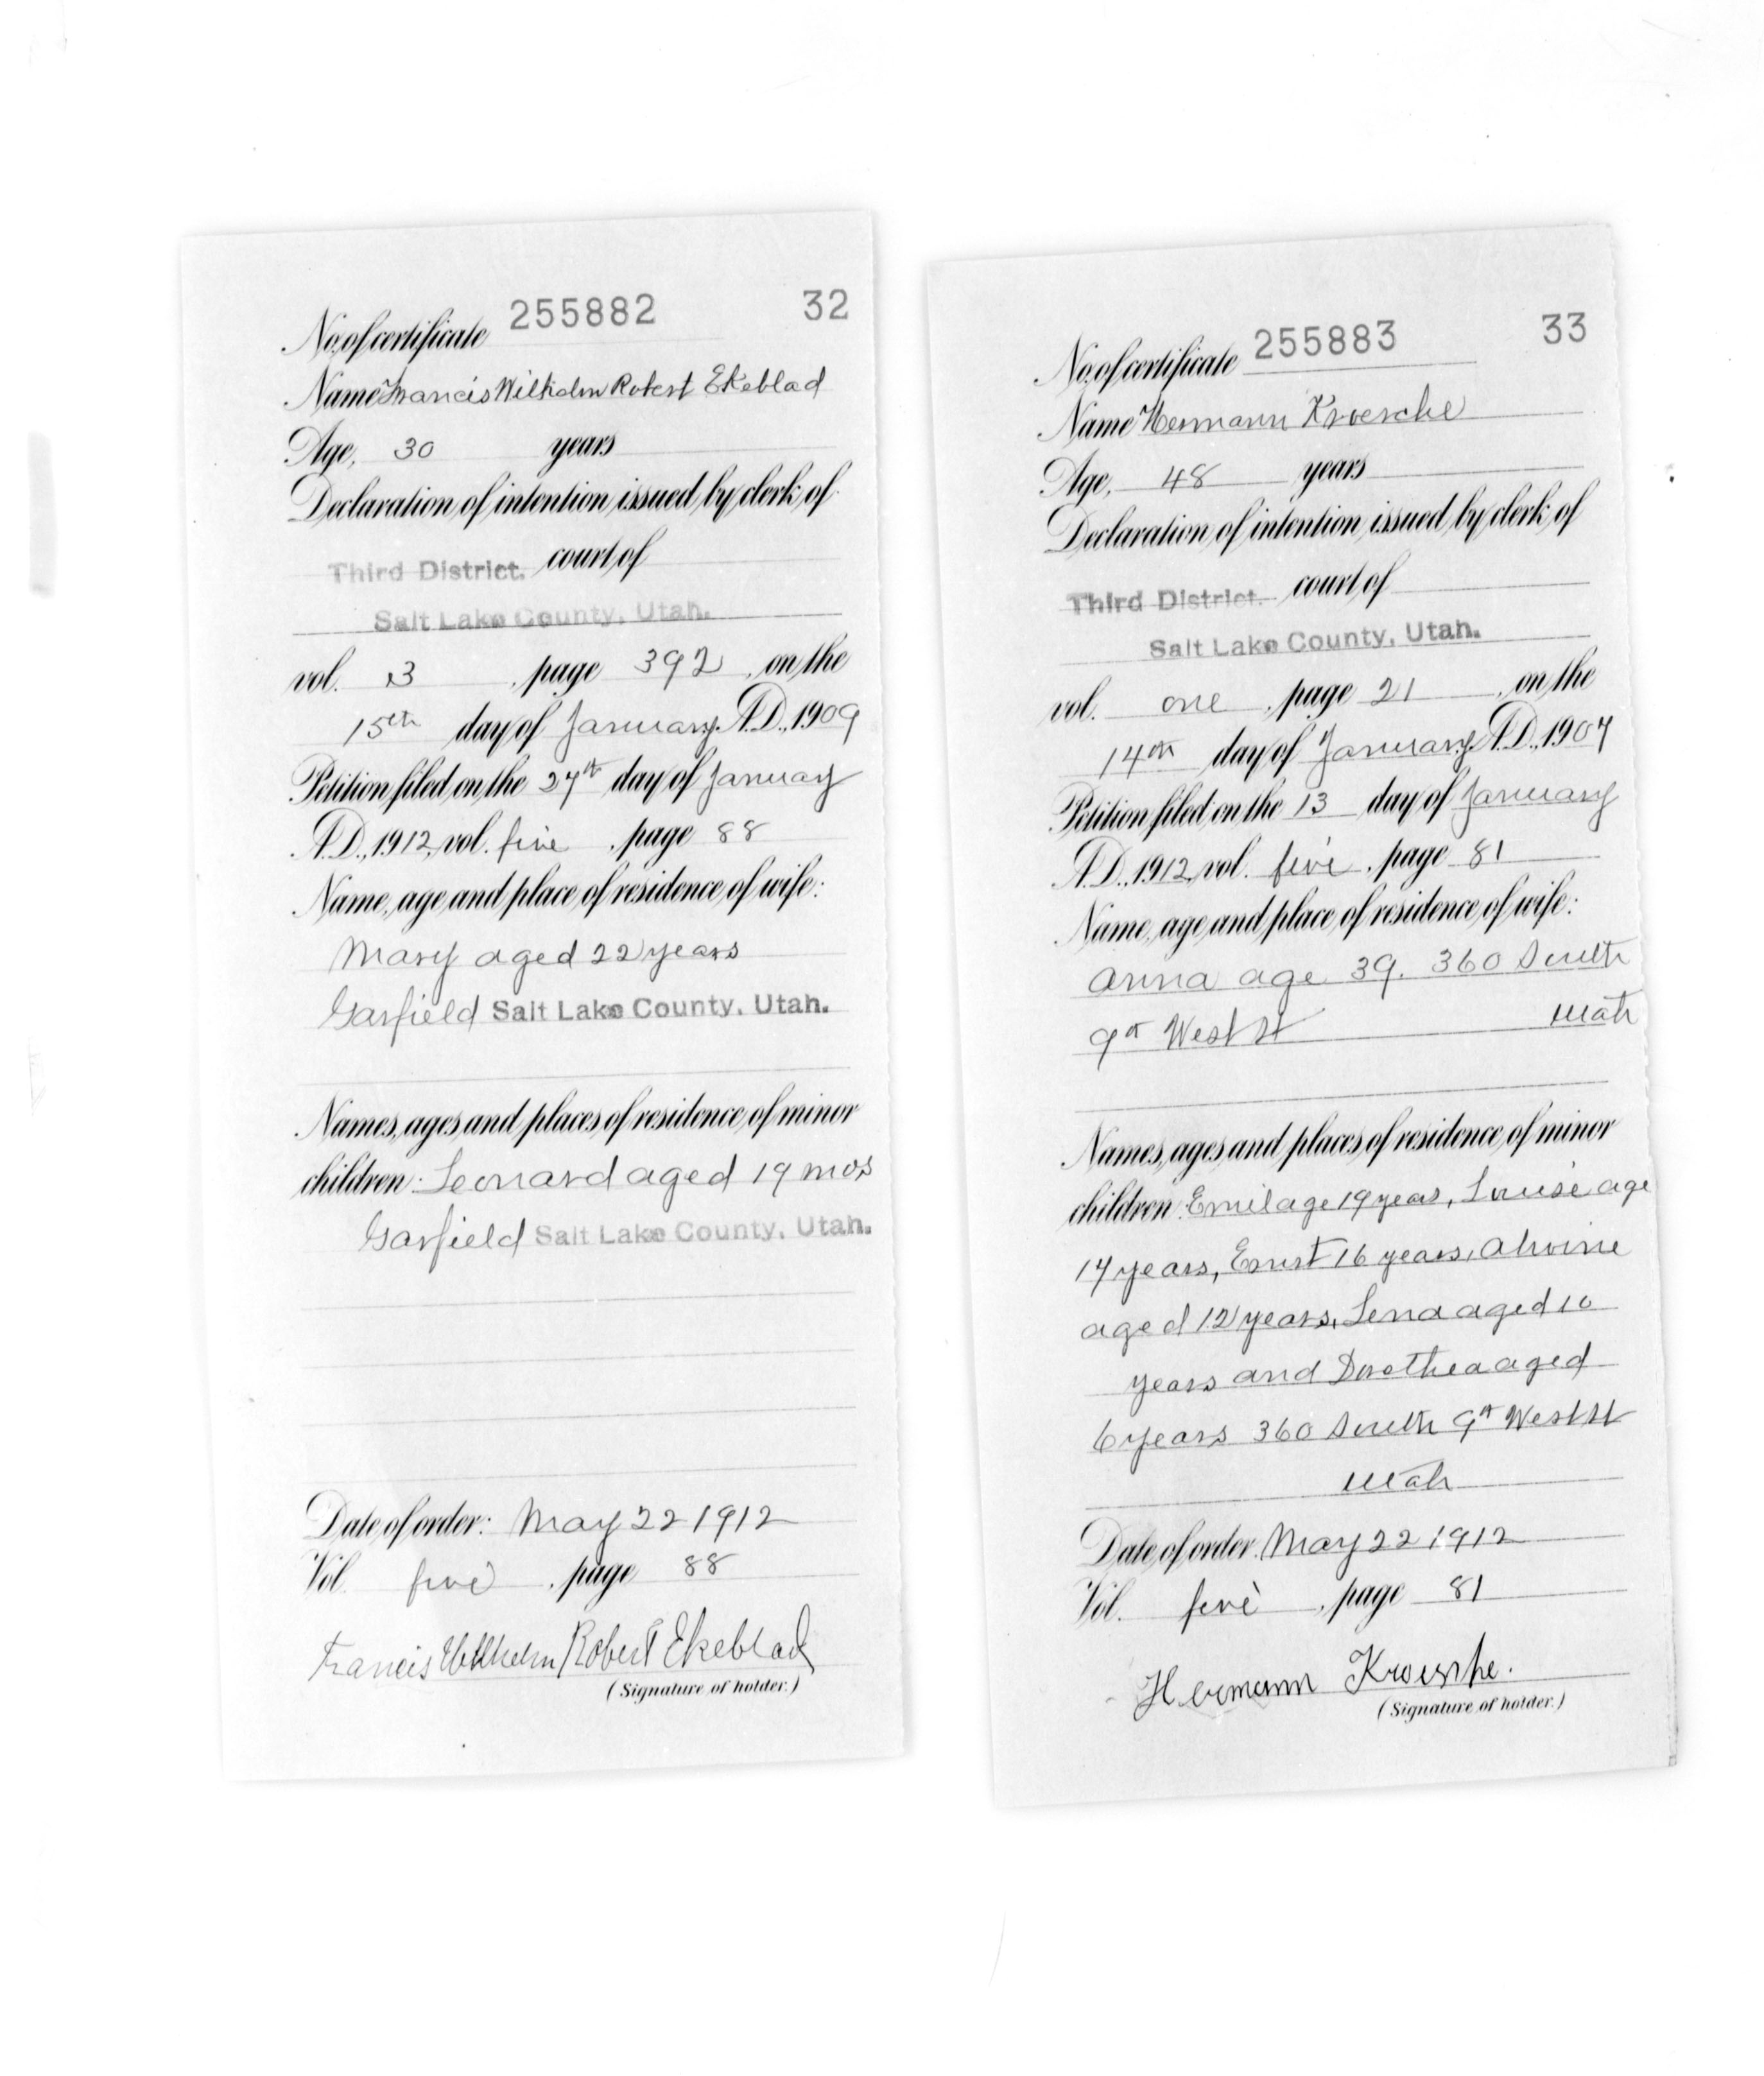 No. of certificate 255882 32
Name Francis Wilhelm Robert Ekeblad
Age, 30 years
Declaration of intention issued by clerk of
Third District. court of
Salt Lake County, Utah.
vol. 3, page 392, on the
15th day of January A.D., 1909
Petition filed on the 27th day of January
A.D., 1912, vol. five, page 88
Name, age and place of residence of wife:
Mary aged 22 years
Garfield Salt Lake County, Utah.
Names, ages and places of residence of minor
children: Leonard aged 19 mos
Garfield Salt Lake County, Utah.
Date of order: May 22 1912
Vol. five, page 88
Francis Wilhelm Robert Ekeblad
(Signature of holder.)
No. of certificate 255883 33
Name Hermann Kroesche
Age, 48 years
Declaration of intention issued by clerk of
Third District. court of
Salt Lake County, Utah.
vol. one, page 21, on the
14th day of January A.D., 1907
Petition filed on the 13 day of January
A.D., 1912, vol. five, page 81
Name, age and place of residence of wife:
Anna age 39. 360 South
9th West St Utah
Names, ages and places of residence of minor
children: Emil age 19 years, Louise age
17 years, Ernst 16 years, Alwine
aged 12 years, Lena aged 10
years and Dorothea aged
6 years 360 South 9th West St
Utah
Date of order: May 22 1912
Vol. five, page 81
Hermann Kroesche.
(Signature of holder.)